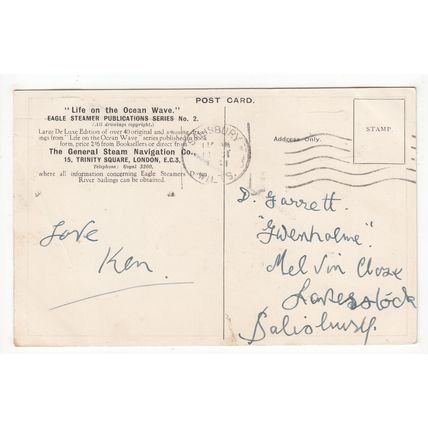 POST CARD.
"Life on the Ocean Wave."
EAGLE STEAMER PUBLICATIONS SERIES No. 2.
(All drawings copyright.)
Large De Luxe Edition of over 40 original and amusing
ings from "Life on the Ocean Wave" series published in book
form, price 2/6 from Booksellers or direct from
The General Steam Navigation Co.,
15, TRINITY SQUARE, LONDON, E.C.3,
Telephone: Royal 3200,
where all information concerning Eagle Steamers
River Sailings can be obtained.
SALISBURY
WILTS
Address Only.
STAMP.
Love
Ken.
D. Garrett.
"Gwenholme".
Melvin Close
Laverstock
Salisbury.